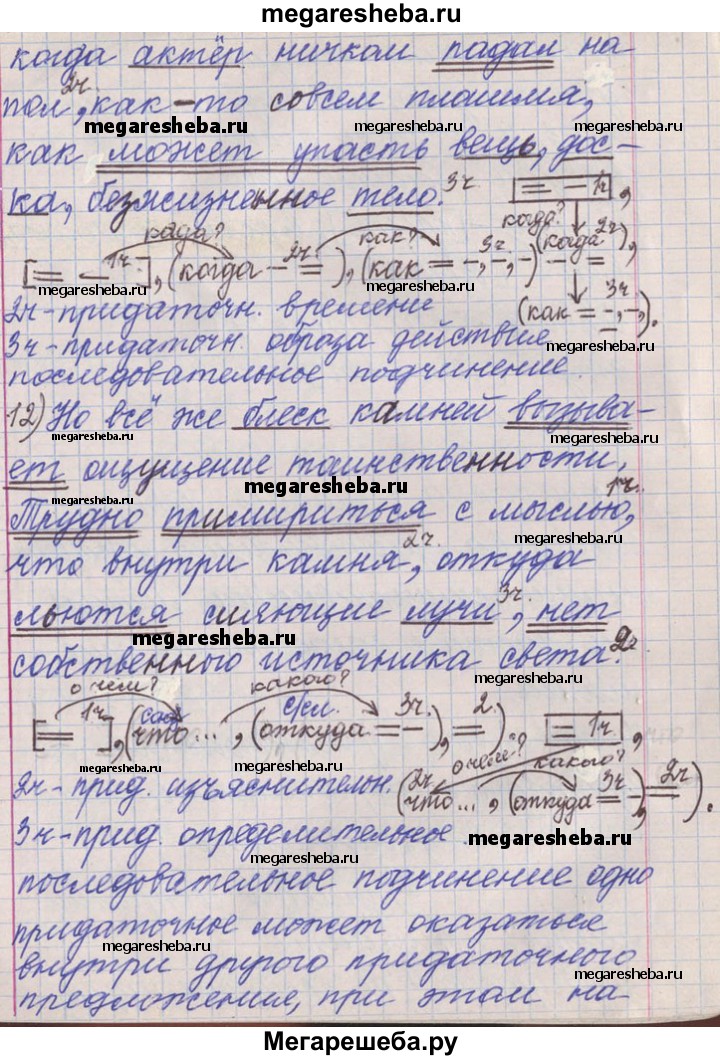 megaresheba.ru
когда актёр ничком падал на
пол 2ч, как-то совсем плашмя,
megaresheba.ru megaresheba.ru
как может упасть вещь, дос-
ка, безжизненное тело. 3ч [= - 1ч],
когда? как? когда?
[= - 1ч], (когда - = 2ч), (как = -, -, - 3ч) (когда - = 2ч),
megaresheba.ru megaresheba.ru megaresheba.ru
2ч - придаточн. времени (как = -, -, - 3ч).
3ч - придаточн. образа действия
последовательное подчинение
12) Но всё же блеск камней вызыва-
megaresheba.ru megaresheba.ru
ет ощущение таинственности.
megaresheba.ru
Трудно примириться с мыслью, 1ч.
что внутри камня, откуда 2ч.
льются сияющие лучи 3ч, нет
megaresheba.ru megaresheba.ru
собственного источника света. 2ч
о чем? какого?
[= 1ч], (что..., (откуда = - 3ч.), = 2.). [= 1ч],
megaresheba.ru megaresheba.ru
о чем? какого?
2ч - прид. изъяснительн. (2ч что..., (откуда = - 3ч), = 2ч).
3ч - прид. определительное.
megaresheba.ru megaresheba.ru
последовательное подчинение одно
придаточное может оказаться
megaresheba.ru megaresheba.ru
внутри другого придаточного
megaresheba.ru
предложения, при этом на-
Мегарешеба.ру